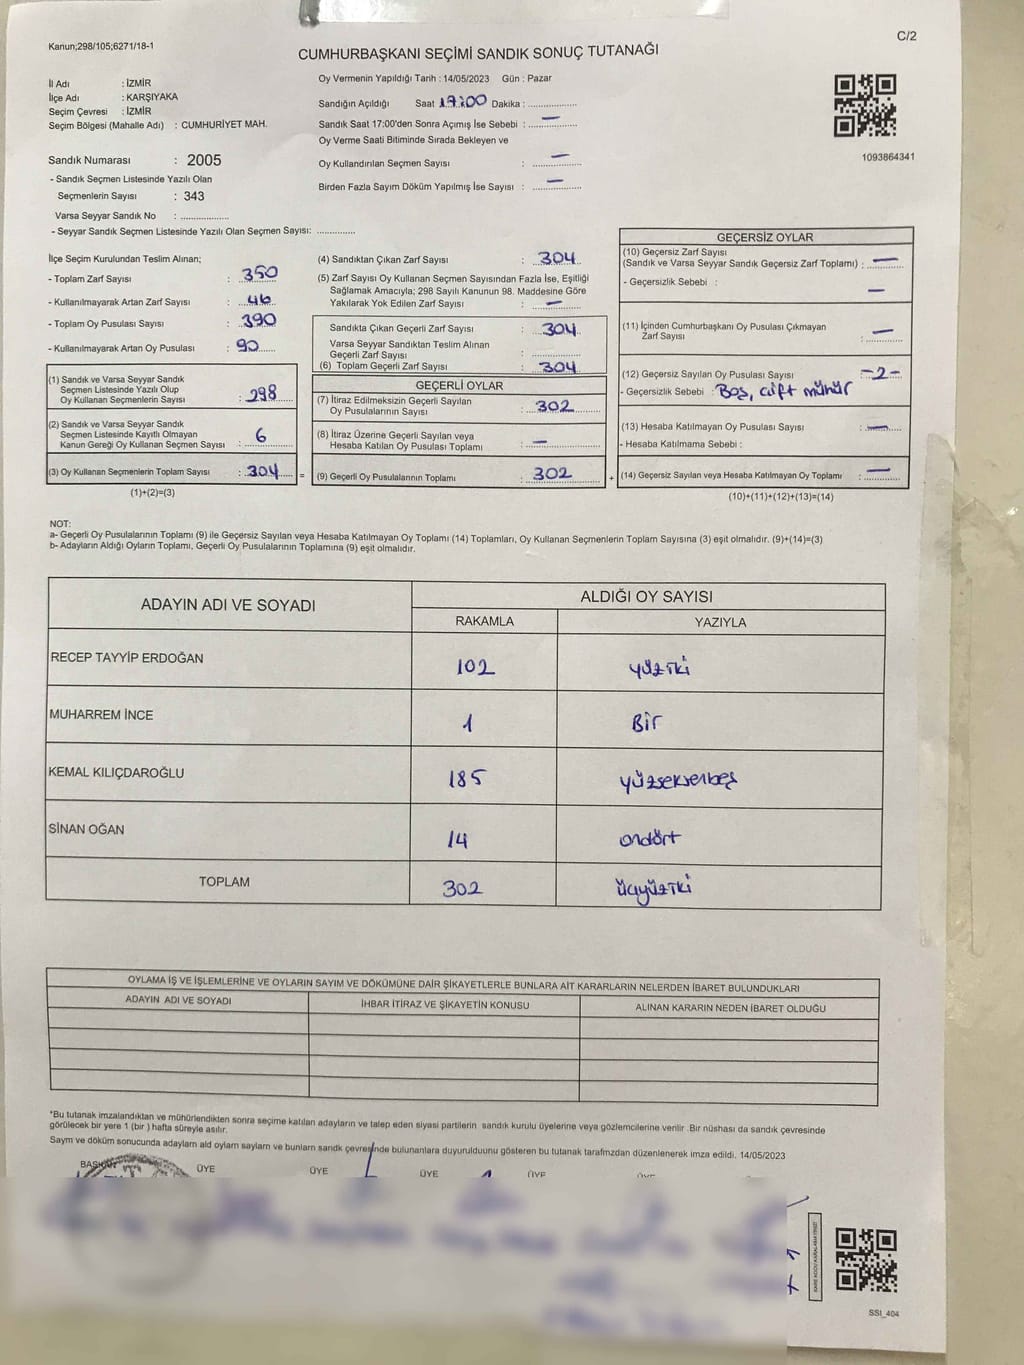 Kanun;298/105;6271/18-1
C/2
CUMHURBAŞKANI SEÇİMİ SANDIK SONUÇ TUTANAĞI
İl Adı : İZMİR
İlçe Adı : KARŞIYAKA
Seçim Çevresi : İZMİR
Seçim Bölgesi (Mahalle Adı) : CUMHURİYET MAH.
Sandık Numarası : 2005
- Sandık Seçmen Listesinde Yazılı Olan
Seçmenlerin Sayısı : 343
Varsa Seyyar Sandık No : ..................
- Seyyar Sandık Seçmen Listesinde Yazılı Olan Seçmen Sayısı: ..............
Oy Vermenin Yapıldığı Tarih : 14/05/2023 Gün : Pazar
Sandığın Açıldığı Saat 17:00 Dakika : ..................
Sandık Saat 17:00'den Sonra Açımış İse Sebebi : —
Oy Verme Saati Bitiminde Sırada Bekleyen ve
Oy Kullandırılan Seçmen Sayısı : —
Birden Fazla Sayım Döküm Yapılmış İse Sayısı : —
1093864341
İlçe Seçim Kurulundan Teslim Alınan;
- Toplam Zarf Sayısı : 350
- Kullanılmayarak Artan Zarf Sayısı : 46
- Toplam Oy Pusulası Sayısı : 390
- Kullanılmayarak Artan Oy Pusulası : 90
(1) Sandık ve Varsa Seyyar Sandık
Seçmen Listesinde Yazılı Olup
Oy Kullanan Seçmenlerin Sayısı : 298
(2) Sandık ve Varsa Seyyar Sandık
Seçmen Listesinde Kayıtlı Olmayan
Kanun Gereği Oy Kullanan Seçmen Sayısı : 6
(3) Oy Kullanan Seçmenlerin Toplam Sayısı : 304 =
(1)+(2)=(3)
(4) Sandıktan Çıkan Zarf Sayısı : 304
(5) Zarf Sayısı Oy Kullanan Seçmen Sayısından Fazla İse, Eşitliği
Sağlamak Amacıyla; 298 Sayılı Kanunun 98. Maddesine Göre
Yakılarak Yok Edilen Zarf Sayısı : —
Sandıkta Çıkan Geçerli Zarf Sayısı : 304
Varsa Seyyar Sandıktan Teslim Alınan
Geçerli Zarf Sayısı : ..................
(6) Toplam Geçerli Zarf Sayısı : 304
GEÇERLİ OYLAR
(7) İtiraz Edilmeksizin Geçerli Sayılan
Oy Pusulalarının Sayısı : 302
(8) İtiraz Üzerine Geçerli Sayılan veya
Hesaba Katılan Oy Pusulası Toplamı : —
(9) Geçerli Oy Pusulalarının Toplamı : 302 +
GEÇERSİZ OYLAR
(10) Geçersiz Zarf Sayısı
(Sandık ve Varsa Seyyar Sandık Geçersiz Zarf Toplamı) : —
- Geçersizlik Sebebi : —
(11) İçinden Cumhurbaşkanı Oy Pusulası Çıkmayan
Zarf Sayısı : —
(12) Geçersiz Sayılan Oy Pusulası Sayısı : -2-
- Geçersizlik Sebebi : Boş, çift mühür
(13) Hesaba Katılmayan Oy Pusulası Sayısı : —
- Hesaba Katılmama Sebebi :
(14) Geçersiz Sayılan veya Hesaba Katılmayan Oy Toplamı : —
(10)+(11)+(12)+(13)=(14)
NOT:
a- Geçerli Oy Pusulalarının Toplamı (9) ile Geçersiz Sayılan veya Hesaba Katılmayan Oy Toplamı (14) Toplamları, Oy Kullanan Seçmenlerin Toplam Sayısına (3) eşit olmalıdır. (9)+(14)=(3)
b- Adayların Aldığı Oyların Toplamı, Geçerli Oy Pusulalarının Toplamına (9) eşit olmalıdır.
ADAYIN ADI VE SOYADI ALDIĞI OY SAYISI
RAKAMLA YAZIYLA
RECEP TAYYİP ERDOĞAN 102 yüziki
MUHARREM İNCE 1 Bir
KEMAL KILIÇDAROĞLU 185 yüzseksenbeş
SİNAN OĞAN 14 ondört
TOPLAM 302 üçyüziki
OYLAMA İŞ VE İŞLEMLERİNE VE OYLARIN SAYIM VE DÖKÜMÜNE DAİR ŞİKAYETLERLE BUNLARA AİT KARARLARIN NELERDEN İBARET BULUNDUKLARI
ADAYIN ADI VE SOYADI İHBAR İTİRAZ VE ŞİKAYETİN KONUSU ALINAN KARARIN NEDEN İBARET OLDUĞU
*Bu tutanak imzalandıktan ve mühürlendikten sonra seçime katılan adayların ve talep eden siyasi partilerin sandık kurulu üyelerine veya gözlemcilerine verilir .Bir nüshası da sandık çevresinde
görülecek bir yere 1 (bir ) hafta süreyle asılır.
Sayım ve döküm sonucunda adaylarn ald oylarn saylarn ve bunlarn sandk çevresinde bulunanlara duyurulduunu gösteren bu tutanak tarafmzdan düzenlenerek imza edildi. 14/05/2023
BAŞKAN ÜYE ÜYE ÜYE ÜYE ÜYE
SSI_404